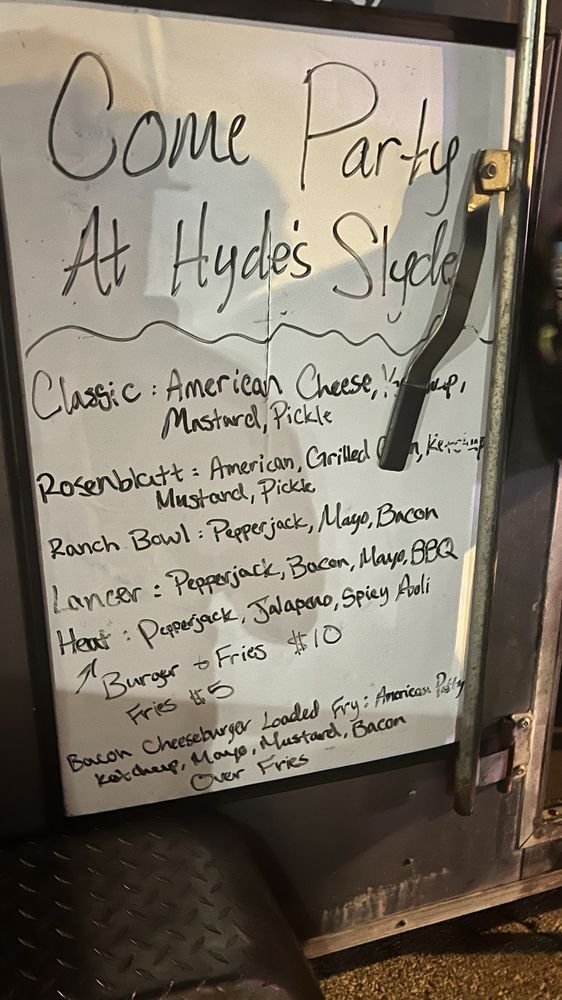 Come Party
At Hyde's Slyde
Classic: American Cheese,
Mustard, Pickle
Rosenblatt: American, Grilled
Mustard, Pickle
Ranch Bowl: Pepperjack, Mayo, Bacon
Lancer: Pepperjack, Bacon, Mayo, BBQ
Heat: Pepperjack, Jalapeno, Spicy Aoli
Burger + Fries $10
Fries $5
Bacon Cheeseburger Loaded Fry: American, Patty
Ketchup, Mayo, Mustard, Bacon
Over Fries